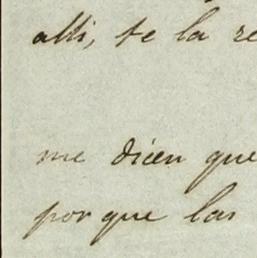 alli, te la re
me dicen que
por que las